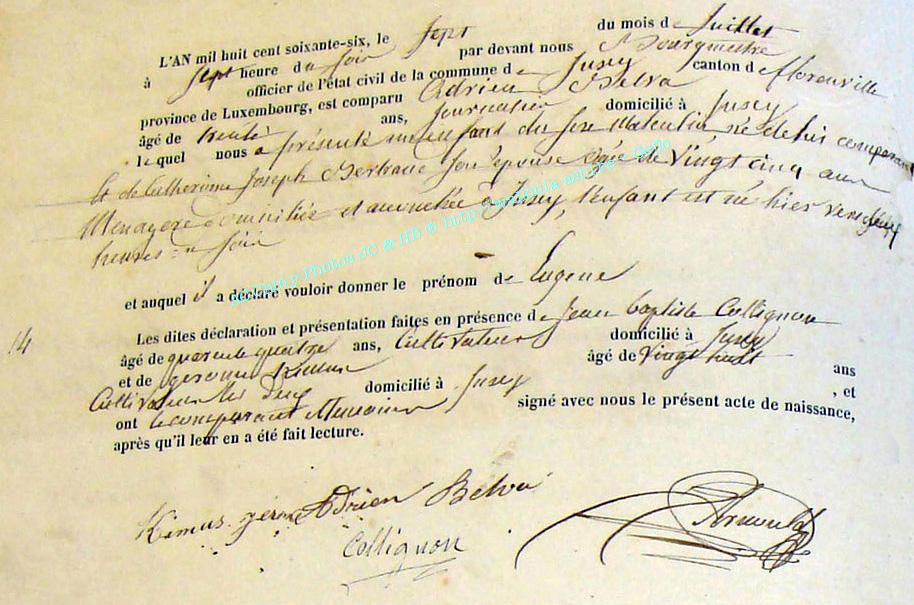 L'AN mil huit cent soixante-six, le sept du mois de Juillet
à sept heure du soir par devant nous Bourgmestre
officier de l'état civil de la commune de Jusey canton de florenville
province de Luxembourg, est comparu Adrien Belva
âgé de trente ans, Journalier domicilié à Jusey
lequel nous a présenté un enfant du sexe Masculin, né de lui comparant
et de Catherinne Joseph Bertrand son épouse agée de vingt cinq ans
Menagere domiciliée et à Jusey, l'enfant est né hier vers
heures du soir
et auquel il a déclaré vouloir donner le prénom de Eugene
14
Les dites déclaration et présentation faites en présence de Jean baptiste Collignon
âgé de quarante quatre ans, Cultivateur domicilié à Jusey
et de gerome Kimus âgé de vingt huit ans
Cultivateur domicilié à Jusey , et
ont le comparant signé avec nous le présent acte de naissance,
après qu'il leur en a été fait lecture.
Kimus gerome Adrien Belva
Collignon
Arnould